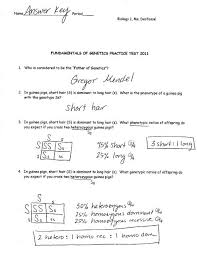 Name Answer Key Period
Biology I, Ms. Denfield
FUNDAMENTALS OF GENETICS PRACTICE TEST 2011
1. Who is considered to be the "Father of Genetics"?
Gregor Mendel
2. In guinea pigs, short hair (S) is dominant to long hair (s). What is the phenotype of a guinea pig
with the genotype Ss?
short hair
3. In guinea pigs, short hair (S) is dominant to long hair (s). What phenotypic ratios of offspring do
you expect if you cross two heterozygous guinea pigs?
S s
S SS Ss
s Ss ss
75% short
25% long
3 short : 1 long
4. In guinea pigs, short hair (S) is dominant to long hair (s). What genotypic ratios of offspring do
you expect if you cross two heterozygous guinea pigs?
S s
S SS Ss
s Ss ss
50% heterozygous
25% homozygous dominant
25% homozygous recessive
2 hetero : 1 homo rec : 1 homo dom